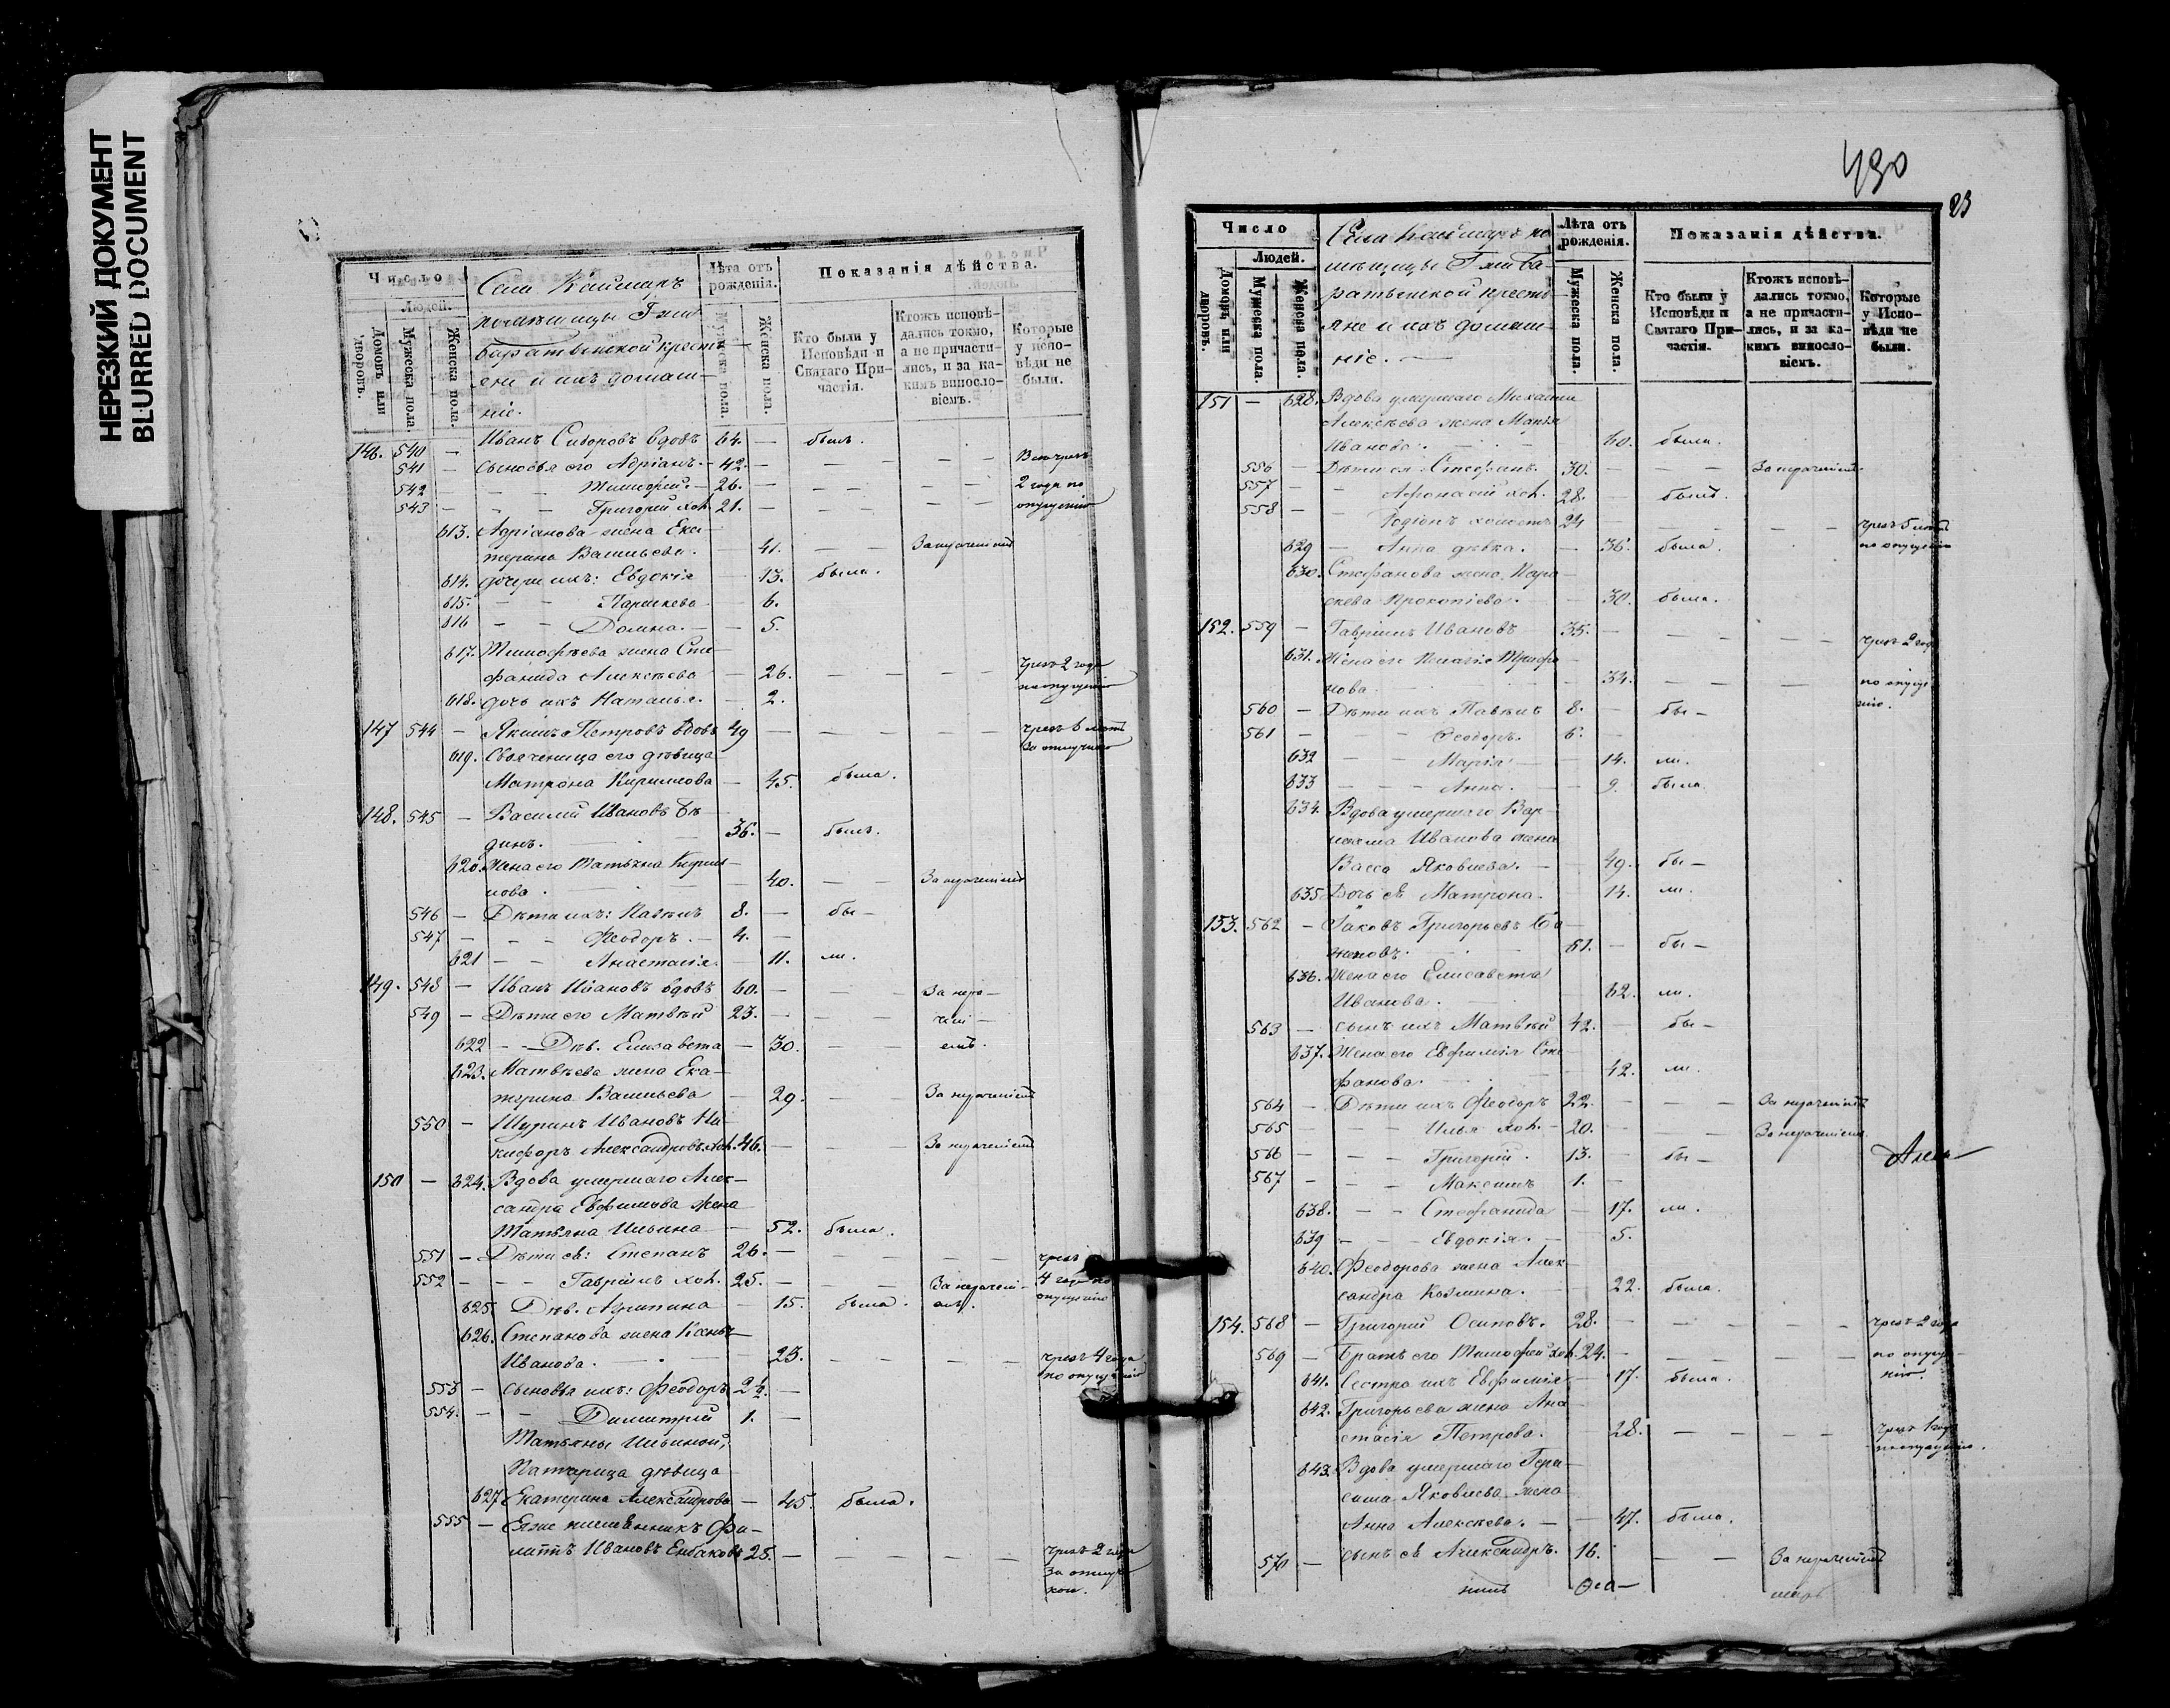 НЕРЕЗКИЙ ДОКУМЕНТ
BLURRED DOCUMENT
Число
Людей.
Домовъ или дворовъ.
Мужеска пола.
Женска пола.
Села Каймаръ
помѣщицы Гжи
Баратынской крестья-
яне и ихъ домаш-
ніе.
Лѣта отъ рожденія.
Мужеска пола.
Женска пола.
Показанія дѣйства.
Кто были у Исповѣди и Святаго При-частія.
Ктожъ исповѣ-дались токмо, а не причасти-лись, и за ка-кимъ винос­ло-віемъ.
Которые у испо-вѣди не были.
146. 540 — Иванъ Сидоровъ вдовъ 64. — былъ.
541 — сыновья его Адріанъ. — 42. —
542 — — — Тимофей. — 26. — 2 года по
543 — — — Григорій хол. 21. — опущенію
613. Адріанова жена Ека-
терина Васильева. — 41. — — За нераченіемъ
614. дочери ихъ: Евдокія — 13. была.
615. — — Параскева — 6.
616 — — Домна. — 5.
617. Тимофѣева жена Сте-
фанида Алексѣева — 26. — — — — чрезъ 2 года
по опущенію
618. дочь ихъ Наталья. — 2.
147 544 — Якимъ Петровъ вдовъ 49 — — — — — чрезъ 6 лѣтъ
За отлучкою
619. Свояченица его дѣвица
Матрона Кирилова — 45. была.
148. 545 — Василій Ивановъ Бѣ-
динъ. — 36. — былъ.
620. Жена его Татьяна Кирил-
лова. — 40. — — За нераченіемъ
546 — Дѣти ихъ: Павелъ 8. — бы-
547 — — — Ѳеодоръ. — 4. —
621 — — Анастасія. — 11. ли.
149. 548 — Иванъ Ивановъ вдовъ 60. — — — За нера-
549 — Дѣти его Матвѣй 23. — — — чені-
622 — — Дѣв. Елизавета — 30. — — емъ.
623. Матвѣева жена Ека-
терина Васильева — 29. — За нераченіемъ
550 — Шуринъ Ивановъ Ни-
кифоръ Александровъ хол. 46. — — — За нераченіемъ
150 — 624. Вдова умершаго Алек-
сандра Евфимова жена
Татьяна Ильина — 52. была.
551 — Дѣти ея: Степанъ 26. — — — — — чрезъ
552 — — — Гавріилъ хол. 25. — — — За нерачені- 4 года по
625. Дѣв. Агрипина — 15. была. емъ. опущенію
626. Степанова жена
Иванова. — 23. — — — — чрезъ 4 года
по опущенію
553 — сыновья ихъ: Ѳеодоръ 2½. —
554. — — Димитрій 1. —
Татьяны Ильиной,
дѣвица
627 Екатерина Александрова — 45. была.
555 — Еяже племянникъ Фи-
липпъ Ивановъ 25. — — — — — чрезъ 2 года
За отлуч-
кою.
490
23
Число
Людей.
Домовъ или дворовъ.
Мужеска пола.
Женска пола.
Села Каймаръ по-
мѣщицы Гжи Ба-
ратынской кресть-
яне и ихъ домаш-
ніе. —
Лѣта отъ рожденія.
Мужеска пола.
Женска пола.
Показанія дѣйства.
Кто были у Исповѣди и Святаго При-частія.
Ктожъ исповѣ-дались токмо, а не причасти-лись, и за ка-кимъ винос­ло-віемъ.
Которые у Испо-вѣди не были.
151 — 628. Вдова умершаго Михаила
Алексѣева жена Марья
Иванова. — 60. была.
556 — Дѣти ея Стефанъ. 30. — — — За нераченіемъ.
557 — — Афонасій хол. 28. — былъ.
558 — — Родіонъ холостъ 24 — — — — — чрезъ 5 лѣтъ
629 — Анна дѣвка. — 36. была. по опущенію
630. Стефанова жена Пара-
скева Прокопіева. — 30. была.
152. 559 — Гавріилъ Ивановъ 35. — — — — — чрезъ 2 года
631. Жена его Пелагія Трифо-
нова. — 34. — — — — по опуще-
560 — Дѣти ихъ Павелъ 8. — бы- нію.
561 — — — Ѳеодоръ. 6. —
632 — — Марія — 14. ли.
633 — — — Анна. — 9. была.
634. Вдова умершаго Вар-
Иванова жена
Васса Яковлева. — 49. бы-
635 Дочь ея Матрона. — 14. ли.
153. 562 — Іаковъ Григорьевъ Ба-
жановъ. — 61. — бы-
636. Жена его Елисавета
Иванова. — 62. ли.
563 — сынъ ихъ Матвѣй 42. — бы-
637. Жена его Евфимія Сте-
фанова. — 42. ли.
564 — Дѣти ихъ Ѳеодоръ 22. — — — За нераченіемъ
565 — — — Илья хол. — 20. — — — За нераченіемъ.
566 — — — Григорій. 13. — бы-
567 — — — Максимъ 1. —
638. — — Стефанида — 17. ли.
639 — — Евдокія. — 5.
640. Ѳеодорова жена Алек-
сандра Козмина. — 22. была.
154. 568 — Григорій Осиповъ. 28. — — — — — чрезъ 2 года
569 — Братъ его Тимофей хол. 24. — — — — — по опуще-
641. Сестра ихъ Евфимія — 17. была. нію.
642. Григорьева жена Ана-
стасія Петрова. — 28. — — — — чрезъ 1 годъ
по опущенію.
643. Вдова умершаго Гера-
сима Яковлева жена
Анна Алексѣева. — 47. была.
570 — сынъ ея Александръ. 16. — — За нераченіемъ